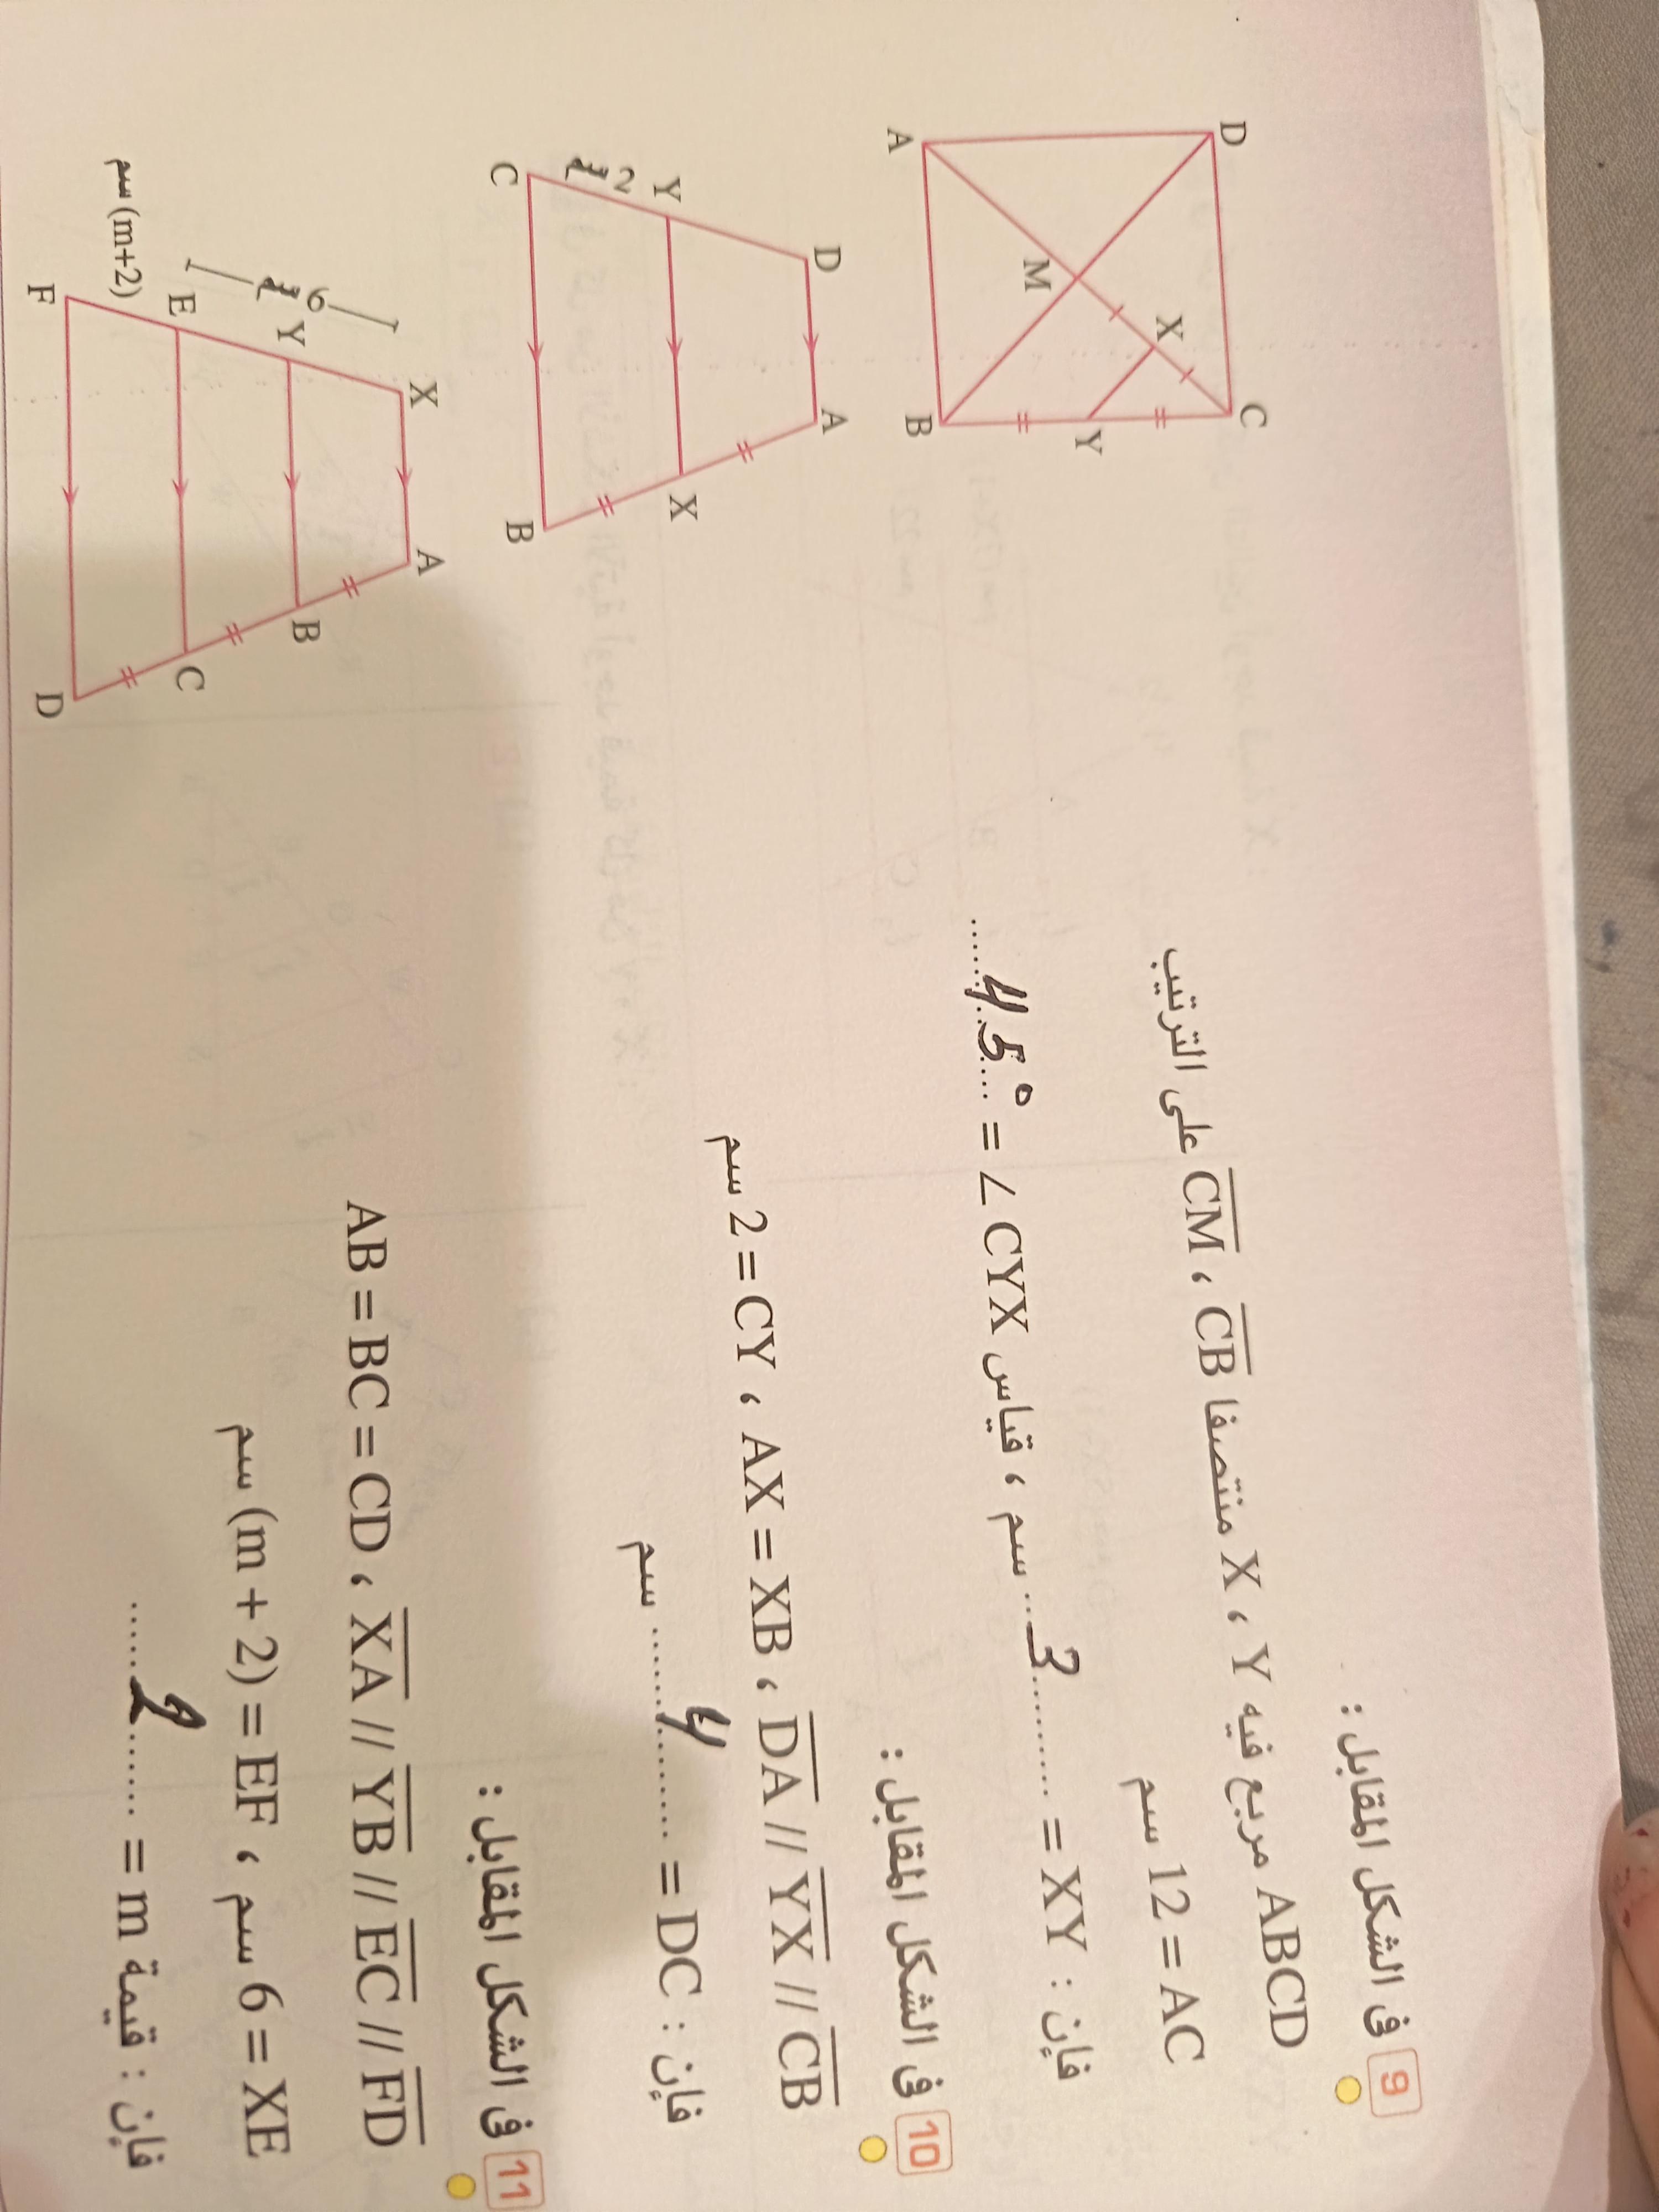 9 فى الشكل المقابل :
ABCD مربع فيه X ، Y منتصفا CM ، CB على الترتيب
AC = 12 سم
فإن : XY = 3 سم ، قياس ∠ CYX = 45°
D
C
X
M
Y
A
B
10 فى الشكل المقابل :
DA // YX // CB ، AX = XB ، CY = 2 سم
فإن : DC = 4 سم
D
A
Y
X
2 سم
C
B
11 فى الشكل المقابل :
AB = BC = CD ، XA // YB // EC // FD
XE = 6 سم ، EF = (m + 2) سم
فإن : قيمة m =
X
A
6 سم
Y
B
E
C
(m+2) سم
F
D